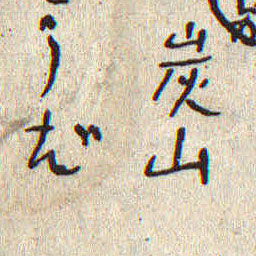 炭山
うだ